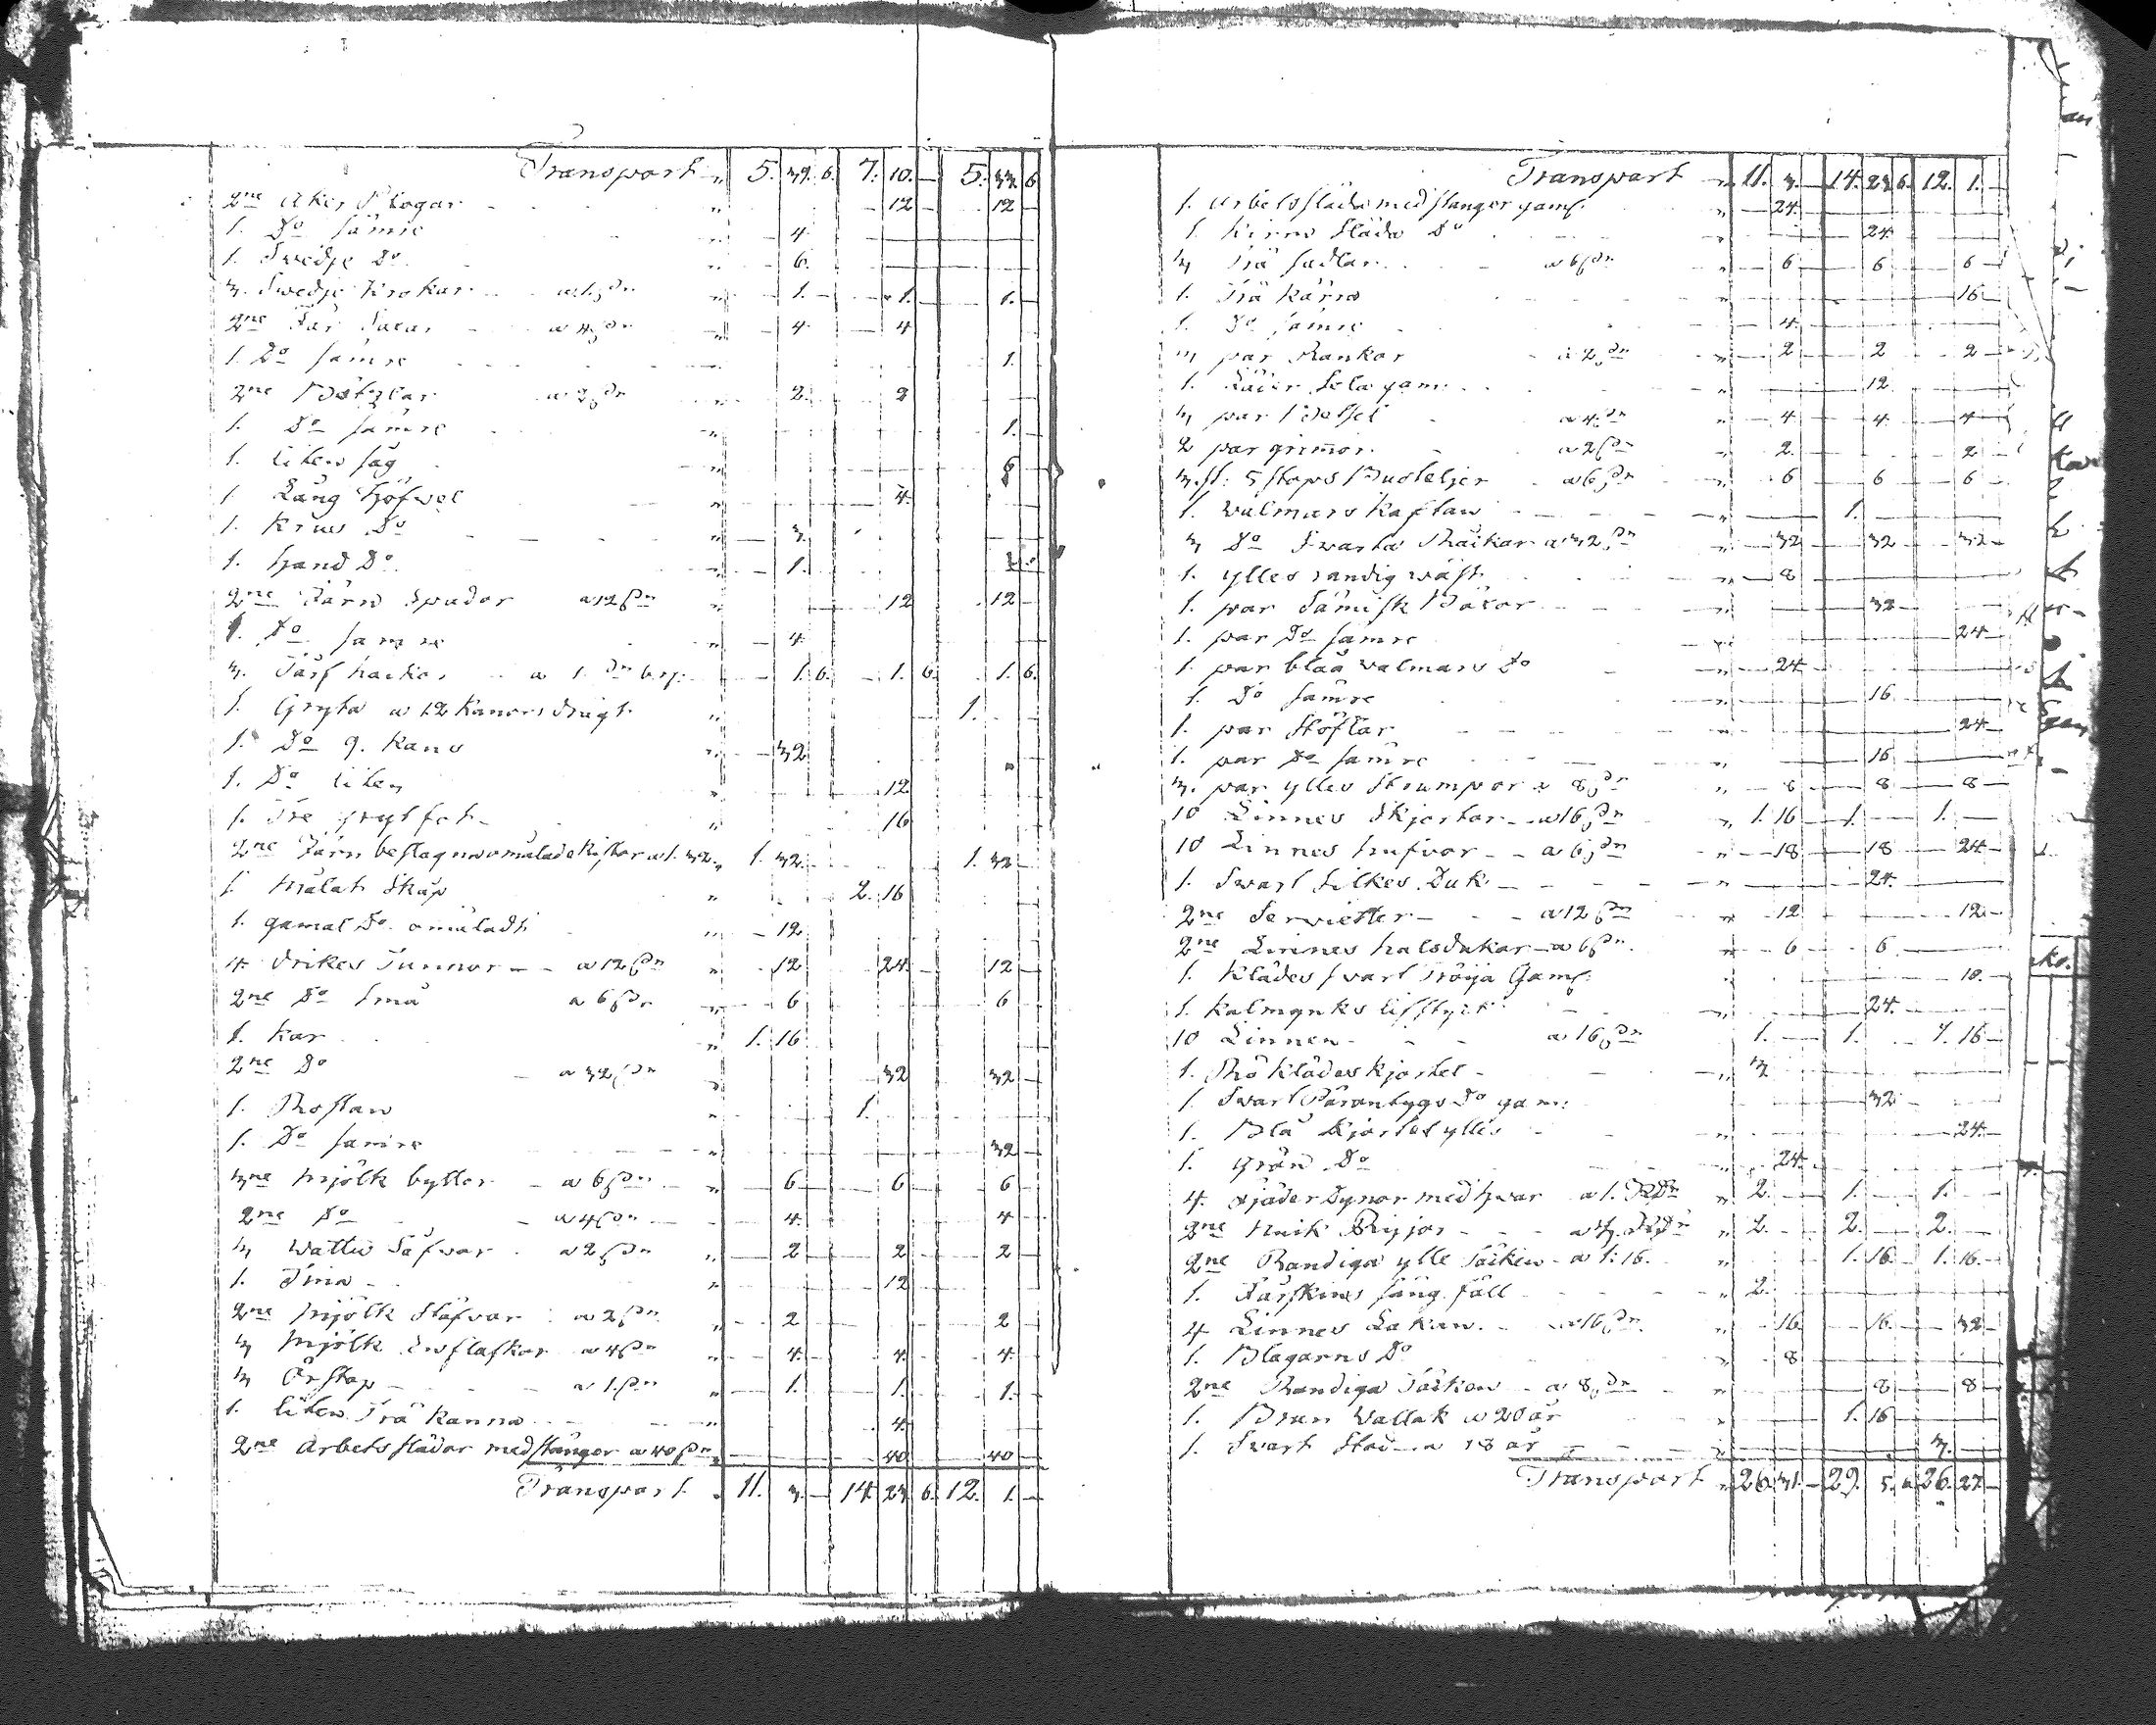 Transport „ 5. 39. 6. 7. 10. — 5. 33. 6
2ne Åker Plogar „ 12 — 12 —
1. Do sämre „ 4.
1. Swedje Do „ 6.
3. Swedje Krokar a 1 sdr „ 1. 1. 1.
2ne Får Saxar a 4 sdr „ 4 — 4
1. Do sämre 1.
2ne a 2 sdr 2. 2
1. Do sämre „ 1.
1. liten såg „ 6
1 Lång Höfwel „ 4.
1. Krus Do „ 3.
1. Hand Do „ 1.
2ne Järn Spador a 12 sdr „ 12 12
1. Do sämre 4.
3. Torf hackor a 1 sdr 6 rp. 1. 6. 1. 6. 1. 6.
1. Gryta a 12 Kanors drygt „ 1.
1. Do 9. Kans „ 32
1. Do liten „ 12
1. Tre grytfot „ 16
2ne Järn beslagna omålade Kistor a 1. 32. „ 1. 32. 1. 32
1. Målat Skåp „ 2. 16
1. gamal Do omåladt „ 12
4. Drikes Tunnor a 12 sdr „ 12 24. 12
2ne Do små a 6 sdr „ 6 6
1. Kar „ 1. 16
2ne Do a 32 sdr „ 32 32
1. Rostan „ 1.
1. Do sämre 32
3ne Mjölk bytter a 6 sdr „ 6 6 6
2ne Do a 4 sdr 4. 4
3 Wattu Såfwar a 2 sdr „ 2 2 2
1. Tina „ 12
2ne Mjölk Stäfvor a 2 sdr „ 2 2
3 Mjölk flaskor a 4 sdr „ 4. 4. 4.
3 Örstop a 1. sdr „ 1. 1. 1.
1. liten Trä Kanna „ 4.
2ne Arbets slädor med stänger a 40 sdr „ 40 40
Transport „ 11. 3. — 14. 23. 6. 12. 1. —
Transport „ 11. 3. — 14. 23. 6. 12. 1. —
1. Arbets släda med stänger gaml. „ 24.
1. Kirns släda Do „ 24.
3 Trä sadlar a 6 sdr „ 6 6 6
1. Trä Kärra „ 16
1. Do sämre „ 4.
3 par Rankor a 2 sdr „ 2 2 2
1. Läder Sela gam: „ 12
3 par Betsel a 4 sdr „ 4 4 4
2 par grimmor a 2 sdr „ 2. 2
3. st: 5 stops Buteljer a 6 sdr „ 6 6 6
1. Walmars Kaftan „ 1.
3 Do Swarta Råckar a 32 sdr „ 32 32 32
1. ylles randig wäst „ 8
1. par Sämisk Böxor „ 32
1. par Do sämre 24
1. par blåa walmars Do „ 24
1. Do sämre „ 16
1. par Stöflar „ 24
1. par Do sämre „ 16
3. par ylles Strumpor a 8 sdr „ 8 8 8
10 Linnes Skjortor a 16 sdr „ 1. 16 1. 1.
10 Linnes hufvor a 6 sdr „ 18 18 24
1. Swart Silkes Duk „ 24.
2ne Servietter a 12 sdr „ 12 12
2ne Linnes halsdukar a 6 sdr „ 6 6
1. Klädes swart Tröja Gaml. „ 10.
1. Kalmynks lifstyck „ 24.
10 Linnen a 16 sdr 1. 1. 1. 16
1. Rö Klädes Kjortel „ 3
1. Swart Do gam: 32
1. Blå Kjortel ylles „ 24.
1. Grön Do „ 24.
4. Fjäder Dynor med hwar a 1. RDr „ 2. 1. 1.
2ne „ 2. 2. 2.
2ne Randiga ylle Täcken a 1: 16. „ 1. 16 1. 16
1. Fårskins säng fäll „ 2.
4 Linnes Lakan a 16 sdr „ 16 16 32
1. Blagarns Do 8
2ne Randiga Täcken a 8 sdr „ 8 8
1. Brun Wallak a 20 år 1. 16
1. Swart Sto a 18 år „ 3.
Transport „ 26. 31. — 29. 5. 26. 27. —